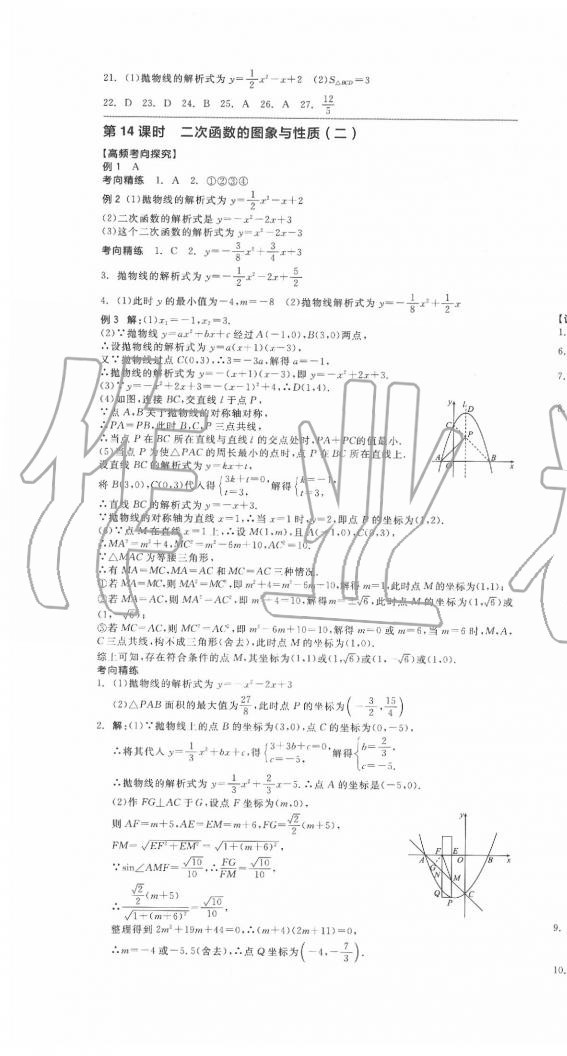 21. (1)抛物线的解析式为 y=1/2x²-x+2 (2)S△BCD=3
22. D 23. D 24. B 25. A 26. A 27. 12/5
第14课时 二次函数的图象与性质(二)
【高频考向探究】
例1 A
考向精练 1. A 2. ①②③④
例2 (1)抛物线的解析式为 y=1/2x²-x+2
(2)二次函数的解析式是 y=-x²-2x+3
(3)这个二次函数的解析式为 y=x²-2x-3
考向精练 1. C 2. y=-3/8x²+3/4x+3
3. 抛物线的解析式为 y=-1/2x²-2x+5/2
4. (1)此时 y 的最小值为-4,m=-8 (2)抛物线解析式为 y=-1/8x²+1/2x
例3 解:(1)x₁=-1,x₂=3.
(2)∵抛物线 y=ax²+bx+c 经过 A(-1,0),B(3,0)两点,
∴设抛物线的解析式为 y=a(x+1)(x-3),
又∵抛物线过点 C(0,3),∴3=-3a,解得 a=-1,
∴抛物线的解析式为 y=-(x+1)(x-3),即 y=-x²+2x+3.
(3)∵y=-x²+2x+3=-(x-1)²+4,∴D(1,4).
(4)如图,连接 BC,交直线 l 于点 P,
∵点 A,B 关于抛物线的对称轴对称,
∴PA=PB,此时 B,C,P 三点共线,
∴当点 P 在 BC 所在直线与直线 l 的交点处时,PA+PC 的值最小.
(5)当点 P 为使△PAC 的周长最小的点时,点 P 在 BC 所在直线上.
设直线 BC 的解析式为 y=kx+t,
将 B(3,0),C(0,3)代入得{3k+t=0,t=3,解得{k=-1,t=3,
∴直线 BC 的解析式为 y=-x+3.
∵抛物线的对称轴为直线 x=1,∴当 x=1 时,y=2,即点 P 的坐标为(1,2).
(6)∵点 M 在直线 x=1 上,∴设 M(1,m),且 A(-1,0),C(0,3),
∴MA²=m²+4,MC²=m²-6m+10,AC²=10.
∵△MAC 为等腰三角形,
∴有 MA=MC,MA=AC 和 MC=AC 三种情况.
①若 MA=MC,则 MA²=MC²,即 m²+4=m²-6m+10,解得 m=1,此时点 M 的坐标为(1,1);
②若 MA=AC,则 MA²=AC²,即 m²+4=10,解得 m=±√6,此时点 M 的坐标为(1,√6)或
(1,-√6);
③若 MC=AC,则 MC²=AC²,即 m²-6m+10=10,解得 m=0 或 m=6,当 m=6 时,M,A,
C 三点共线,构不成三角形(舍去),此时点 M 的坐标为(1,0).
综上可知,存在符合条件的点 M,其坐标为(1,1)或(1,√6)或(1,-√6)或(1,0).
考向精练
1. (1)抛物线的解析式为 y=-x²-2x+3
(2)△PAB 面积的最大值为27/8,此时点 P 的坐标为(-3/2,15/4)
2. 解:(1)∵抛物线上的点 B 的坐标为(3,0),点 C 的坐标为(0,-5),
∴将其代入 y=1/3x²+bx+c,得{3+3b+c=0,c=-5,解得{b=2/3,c=-5.
∴抛物线的解析式为 y=1/3x²+2/3x-5.∴点 A 的坐标是(-5,0).
(2)作 FG⊥AC 于 G,设点 F 坐标为(m,0),
则 AF=m+5,AE=EM=m+6,FG=√2/2(m+5),
FM=√(EF²+EM²)=√(1+(m+6)²),
∵sin∠AMF=√10/10,∴FG/FM=√10/10,
∴(√2/2(m+5))/√(1+(m+6)²)=√10/10,
整理得到 2m²+19m+44=0,∴(m+4)(2m+11)=0,
∴m=-4 或-5.5(舍去),∴点 Q 坐标为(-4,-7/3).
1.
6.
7.
9.
10.
作业